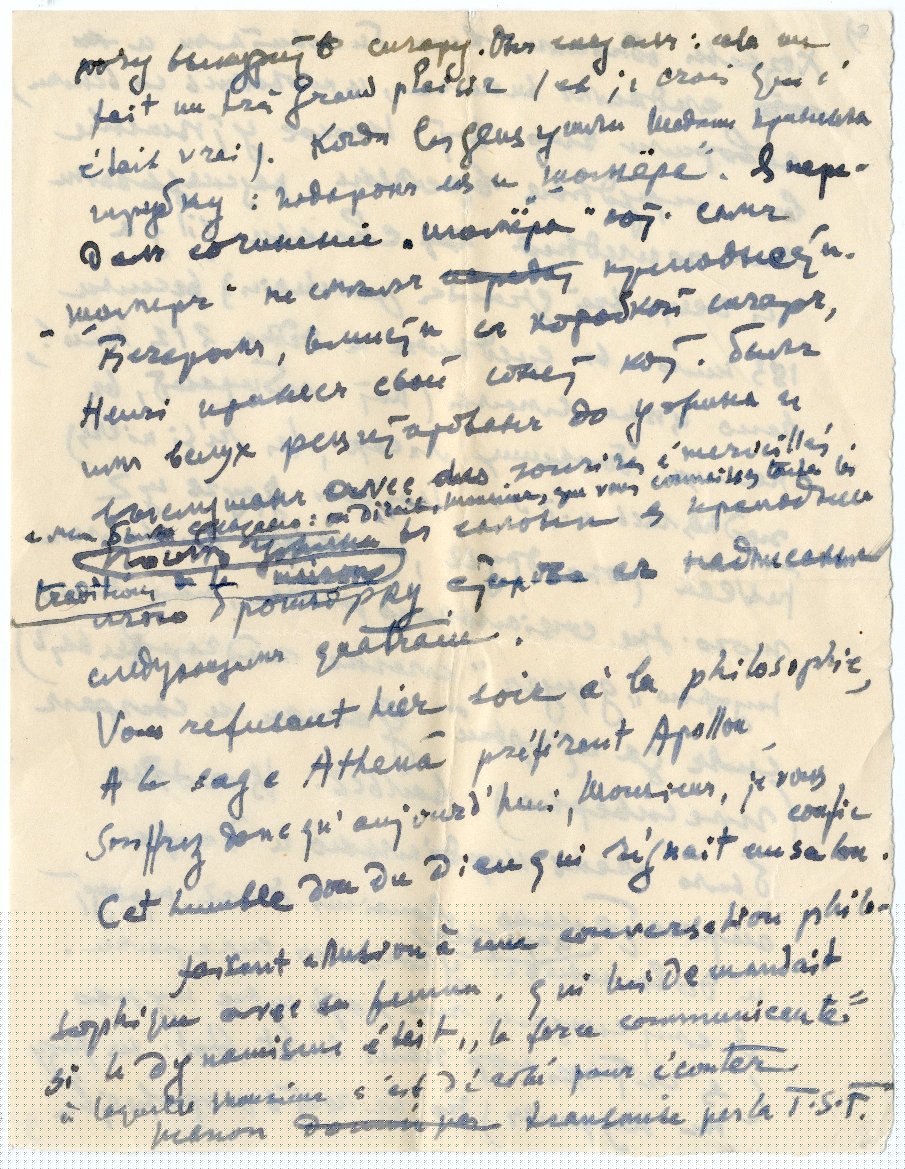 хочу выкурить сигару. Онъ сказалъ: cela me
fait un très grand plaisir (et je crois que c'
était vrai). Когда les gens ушли Madame принесла
трубку: подарокъ ея и „шомёра". Я пере-
далъ сочинение „шомёра" кот. самъ
„шомеръ" не смѣлъ преподнести.
Вечеромъ, вмѣстѣ съ коробкой сигаръ,
Henri принесъ свой сонет кот. былъ
имъ вслухъ рецитированъ до ужина и
выслушанъ avec des sourires émerveillés.
а мнѣ было сказано: on dirait, Monsieur, que vous connaissez toutes les
traditions de la maison
следующимъ quatrain.
Vous refusant hier soir à la philosophie,
A la sage Athéna préférant Apollon
Souffrez donc qu'aujourd'hui, Monsieur, je vous
confie
Cet humble don du Dieu qui régnait au salon.
faisant allusion à une conversation philo-
sophique avec sa femme, qui lui demandait
si le dynamisme était „la force communicante"
à laquelle Monsieur s'est dérobé pour écouter
Manon transmise par la T.S.F.